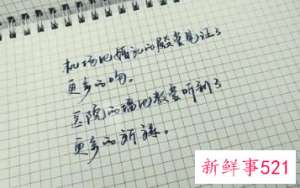 机场比婚礼的殿堂见证了
更多的吻。
医院的墙比教堂听到了
更多的祈祷。
新鲜事521